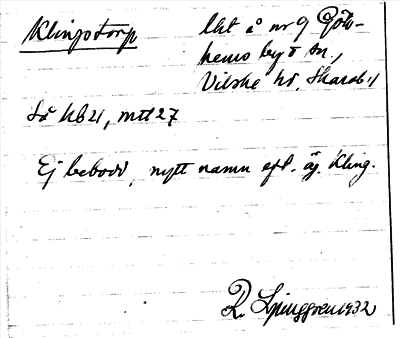 Klingstorp
lht å nr 9 Göte-
hems by o sn.,
Vilske hd, Skarab. l
Så kb 21, mtl 27
Ej bebodd, nytt namn eft. äg. Kling.
R. Ljunggren 1932